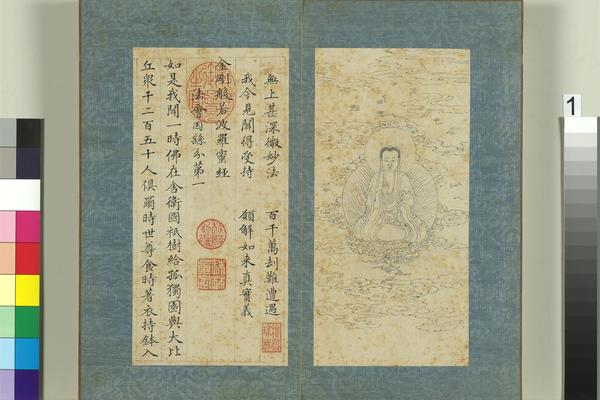 無上甚深微妙法　百千萬刦難遭遇
我今見聞得受持　願解如来真實義
金剛般若波羅蜜經
法會因緣分第一
如是我聞一時佛在舍衛國祇樹給孤獨園與大比
丘衆千二百五十人俱爾時世尊食時著衣持鉢入
1